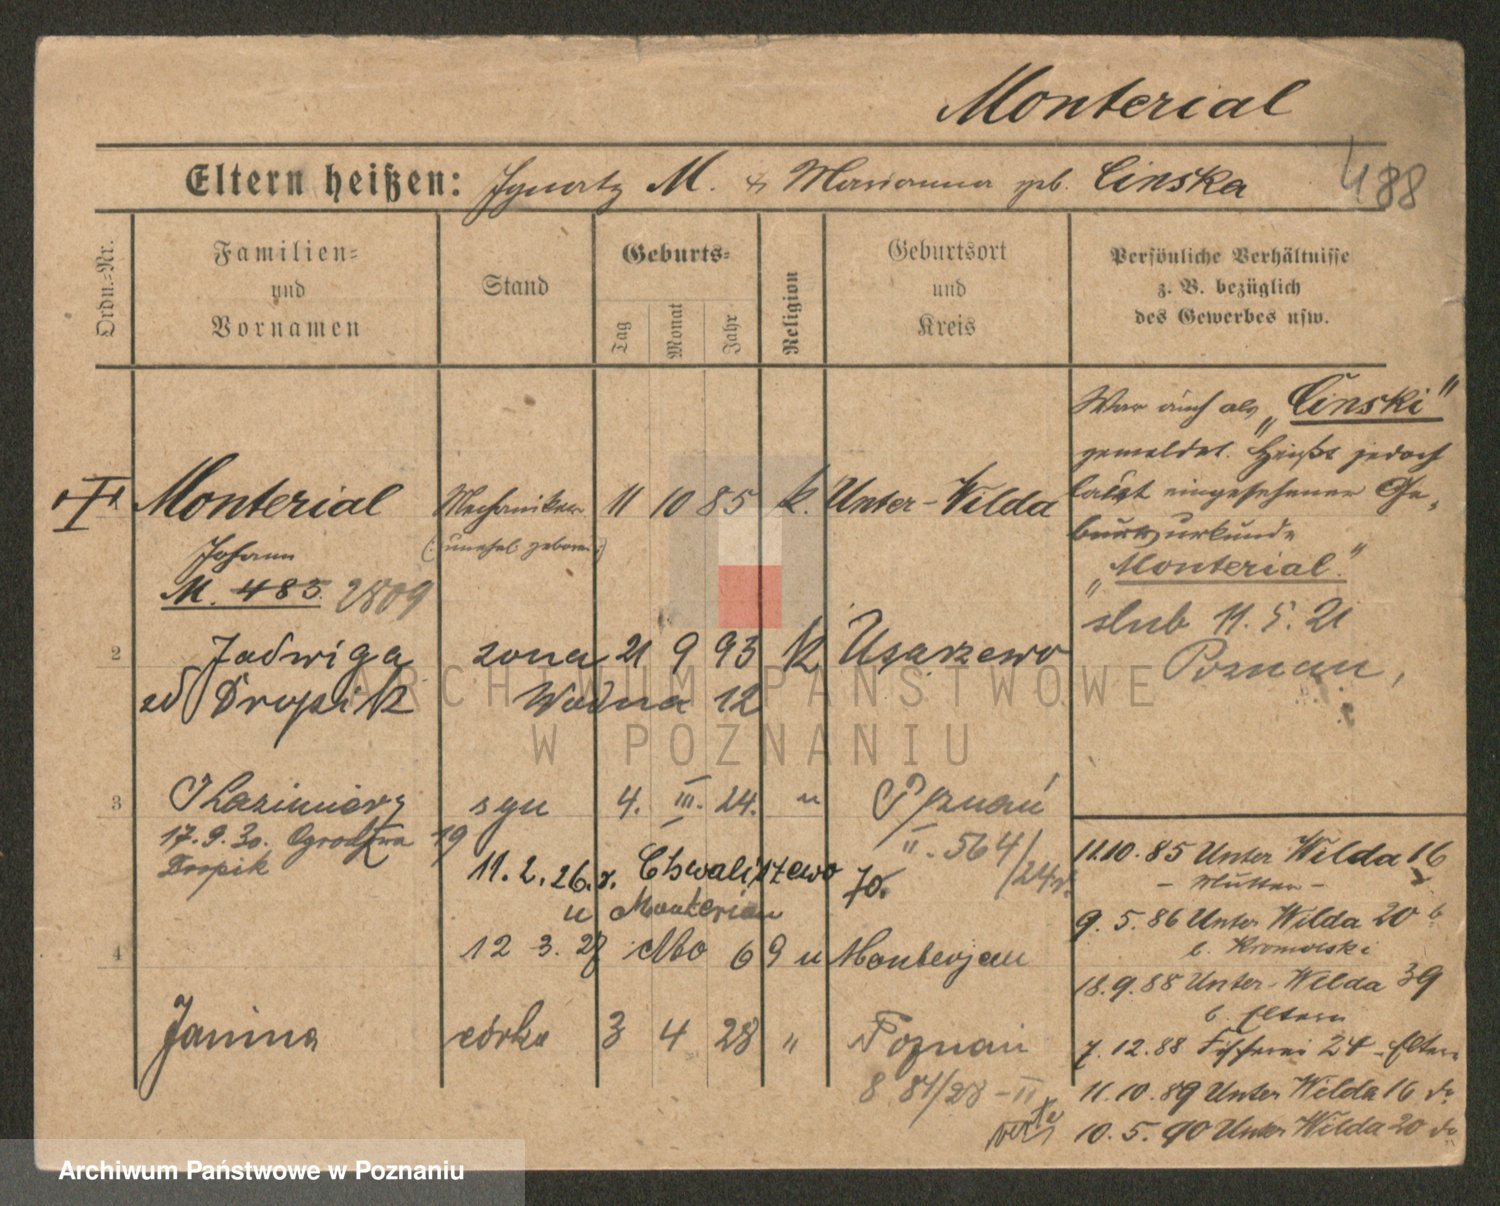 Monterial
Eltern heißen: Ignatz M. & Marianna geb. Cinska
488
Ordn.-Nr.
Familien-
und
Vornamen
Stand
Geburts-
Tag
Monat
Jahr
Religion
Geburtsort
und
Kreis
Persönliche Verhältnisse
z. B. bezüglich
des Gewerbes usw.
War auch als „Cinski"
gemeldet. Heißt jedoch
laut eingesehener Ge-
burtsurkunde
„Monterial."
ślub 11. 5. 21
Poznań,
Monterial Mechaniker 11 10 85 k. Unter-Wilda
Johann (: unehel. geboren :)
M. 485 2809
2 Jadwiga żona 21 9 93 k Uzarzewo
zd Dropik Wodna 12
3 Kazimierz syn 4. III. 24. " Poznań
II. 564/24
17.9.30. Ogrodowa 19
Dropik
11. 2. 26. Chwaliszewo 70.
u Monterian
4 12 3. 27 dto 69 u Monterjan
Janina córka 3 4 28 " Poznań
8 81/28 - II
verte
11.10.85 Unter Wilda 16
- Mutter -
9. 5. 86 Unter Wilda 20 b
b. Kromolski
18.9.88 Unter-Wilda 39
b. Eltern
7. 12. 88 Fischerei 24 - Eltern
11. 10. 89 Unter Wilda 16 do
10. 5. 90 Unter Wilda 20 do
ARCHIWUM PAŃSTWOWE
W POZNANIU
Archiwum Państwowe w Poznaniu